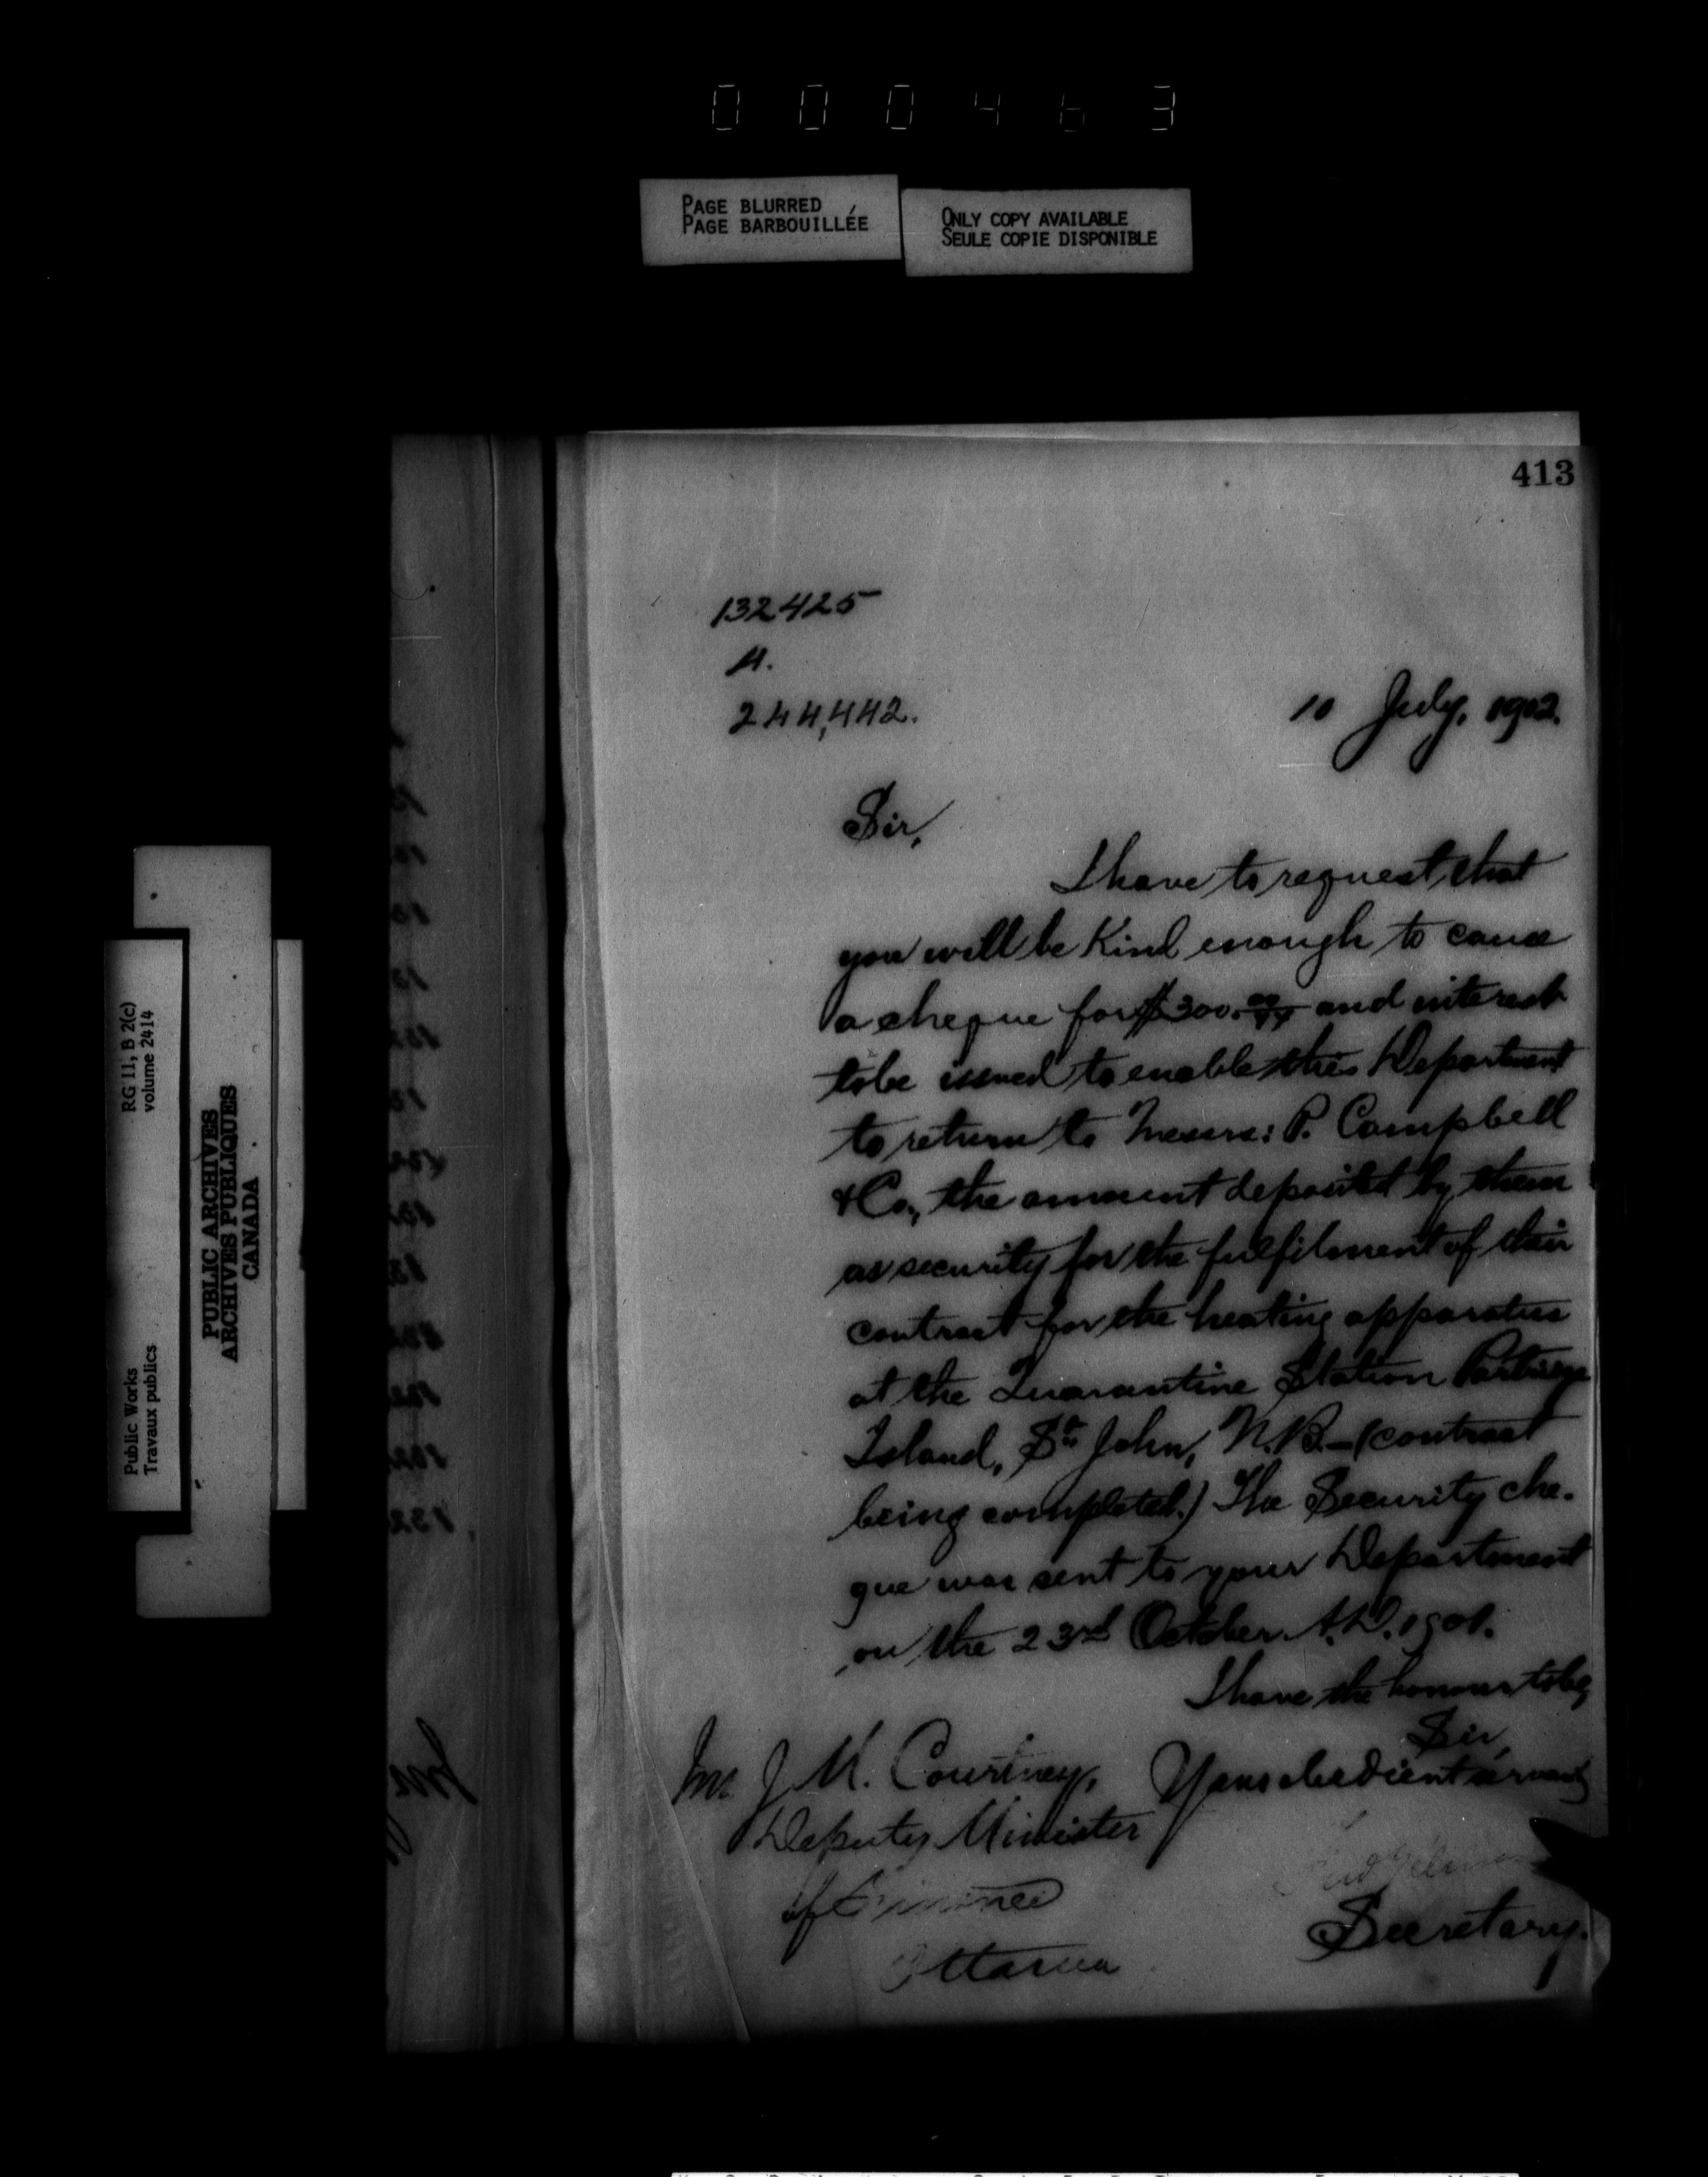 000463
PAGE BLURRED
PAGE BARBOUILLÉE
ONLY COPY AVAILABLE
SEULE COPIE DISPONIBLE
RG 11, B 2(c)
volume 2414
Public Works
Travaux publics
PUBLIC ARCHIVES
ARCHIVES PUBLIQUES
CANADA
413
132425
A.
244,442.
10 July, 1902.
Sir,
I have to request that
you will be Kind enough to cause
a cheque for $300.00 and interest
to be issued to enable this Department
to return to Messrs: P. Campbell
& Co., the amount deposited by them
as security for the fulfilment of their
contract for the heating apparatus
at the Quarantine Station Partridge
Island, St. John, N.B. – (contract
being completed.) The Security che-
que was sent to your Department
on the 23rd October A.D. 1901.
I have the honour to be,
Sir,
Your obedient servant
Mr J. M. Courtney,
Deputy Minister
of Finance
Ottawa
Secretary.